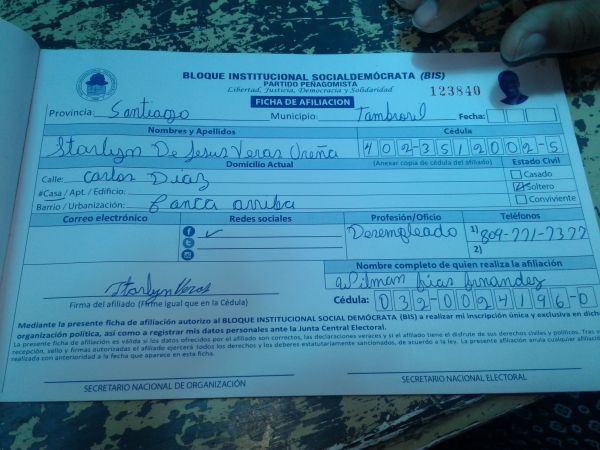 BLOQUE INSTITUCIONAL SOCIALDEMÓCRATA (BIS)
PARTIDO PEÑAGOMISTA
Libertad, Justicia, Democracia y Solidaridad
123840
FICHA DE AFILIACION
Provincia: Santiago Municipio: Tamboril Fecha:
Nombres y Apellidos Cédula
Starlyn De Jesus Veras Ureña 402-3512002-5
Domicilio Actual (Anexar copia de cédula del afiliado) Estado Civil
Calle: Carlos Diaz Casado
#Casa / Apt. / Edificio: Soltero
Barrio / Urbanización: Canca arriba Conviviente
Correo electrónico Redes sociales Profesión/Oficio Teléfonos
Desempleado 1) 809-771-7377
2)
Nombre completo de quien realiza la afiliación
Wilman Dias fernandez
Starlyn Veras
Firma del afiliado (Firme igual que en la Cédula) Cédula: 032-0024196-0
Mediante la presente ficha de afiliación autorizo al BLOQUE INSTITUCIONAL SOCIAL DEMÓCRATA (BIS) a realizar mi inscripción única y exclusiva en dicha
organización política, así como a registrar mis datos personales ante la Junta Central Electoral.
La presente ficha de afiliación es válida si los datos ofrecidos por el afiliado son correctos, las declaraciones veraces y si el afiliado tiene el disfrute de sus derechos civiles y políticos. Tras
recepción, sello y firmas autorizadas el afiliado ejercerá todos los derechos y los deberes estatutariamente sancionados, de acuerdo a la ley. La presente afiliación anula cualquier
realizada con anterioridad a la fecha que aparece en esta ficha.
SECRETARIO NACIONAL DE ORGANIZACIÓN SECRETARIO NACIONAL ELECTORAL